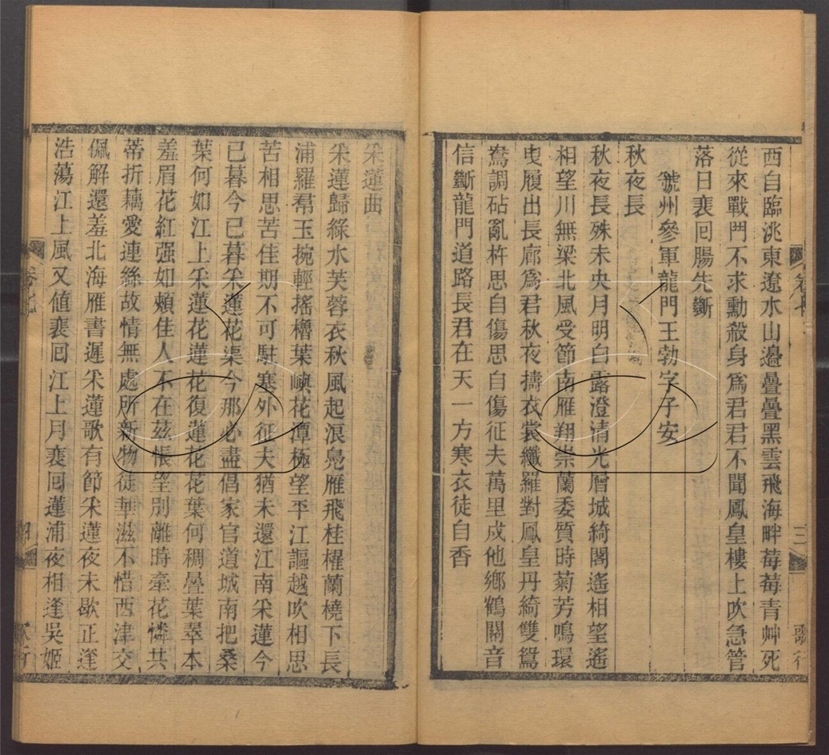 西自臨洮東遼水山邉疊疊黑雲飛海畔莓莓青艸死
從來戰門不求勳殺身爲君君不聞鳳皇樓上吹急管
落日裵囘腸先斷
虢州參軍龍門王勃字子安
秋夜長
秋夜長殊未央月明白露澄清光層城綺閣遙相望遙
相望川無梁北風受節南雁翔崇蘭委質時菊芳鳴環
曳履出長廊爲君秋夜擣衣裳纖羅對鳳皇丹綺雙鴛
鴦調砧亂杵思自傷思自傷征夫萬里戍他鄉鶴關音
信斷龍門道路長君在天一方寒衣徒自香
三
歌行
采蓮曲
采蓮歸綠水芙蓉衣秋風起浪鳧雁飛桂櫂蘭橈下長
浦羅帬玉捥輕搖櫓葉嶼花潭極望平江謳越吹相思
苦相思苦佳期不可駐塞外征夫猶未還江南采蓮今
已暮今已暮采蓮花渠今那必盡倡家官道城南把桑
葉何如江上采蓮花蓮花復蓮花花葉何稠疊葉翠本
羞眉花紅强如頰佳人不在茲悵望別離時牽花憐共
蒂折藕愛連絲故情無處所新物徒華滋不惜西津交
佩解還羞北海雁書遲采蓮歌有節采蓮夜未歇正逢
浩蕩江上風又値裵囘江上月裵囘蓮浦夜相逢吳姬
卷七
歌行